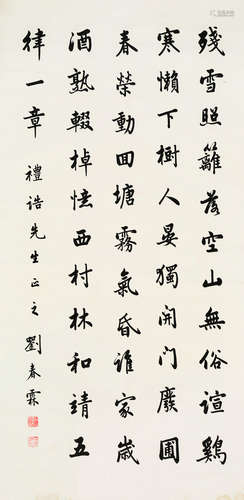 殘雪照籬落空山無俗諠鷄
寒懶下樹人晏獨開門廢圃
春榮動回塘霧氣昏誰家歲
酒熟輟棹憶西村林和靖五
律一章 禮誥先生正之 劉春霖